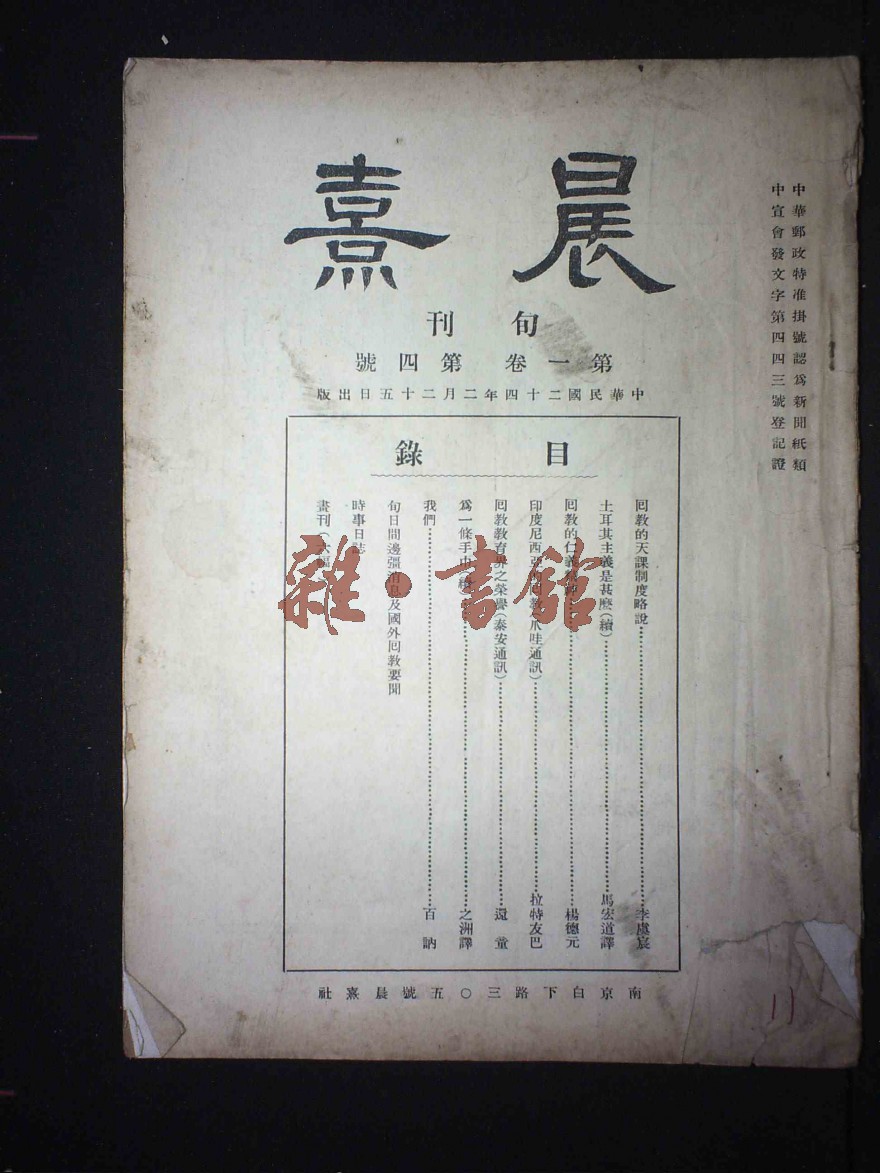 中華郵政特准掛號認爲新聞紙類
中宣會發文字第四四三號登記證
晨熹
旬刊
第一卷 第四號
中華民國二十四年二月二十五日出版
目錄
回教的天課制度略說 李虞宸
土耳其主義是甚麽(續) 馬宏道譯
回教的仁義 楊德元
印度尼西亞 回教(爪哇通訊) 拉特友巴
回教教育界之榮譽(泰安通訊) 還童
爲一條手巾(續) 之洲譯
我們 百訥
旬日間邊彊消息及國外回教要聞
時事日誌
畫刊(六幅)
南京白下路三〇五號晨熹社
雜·書館
11